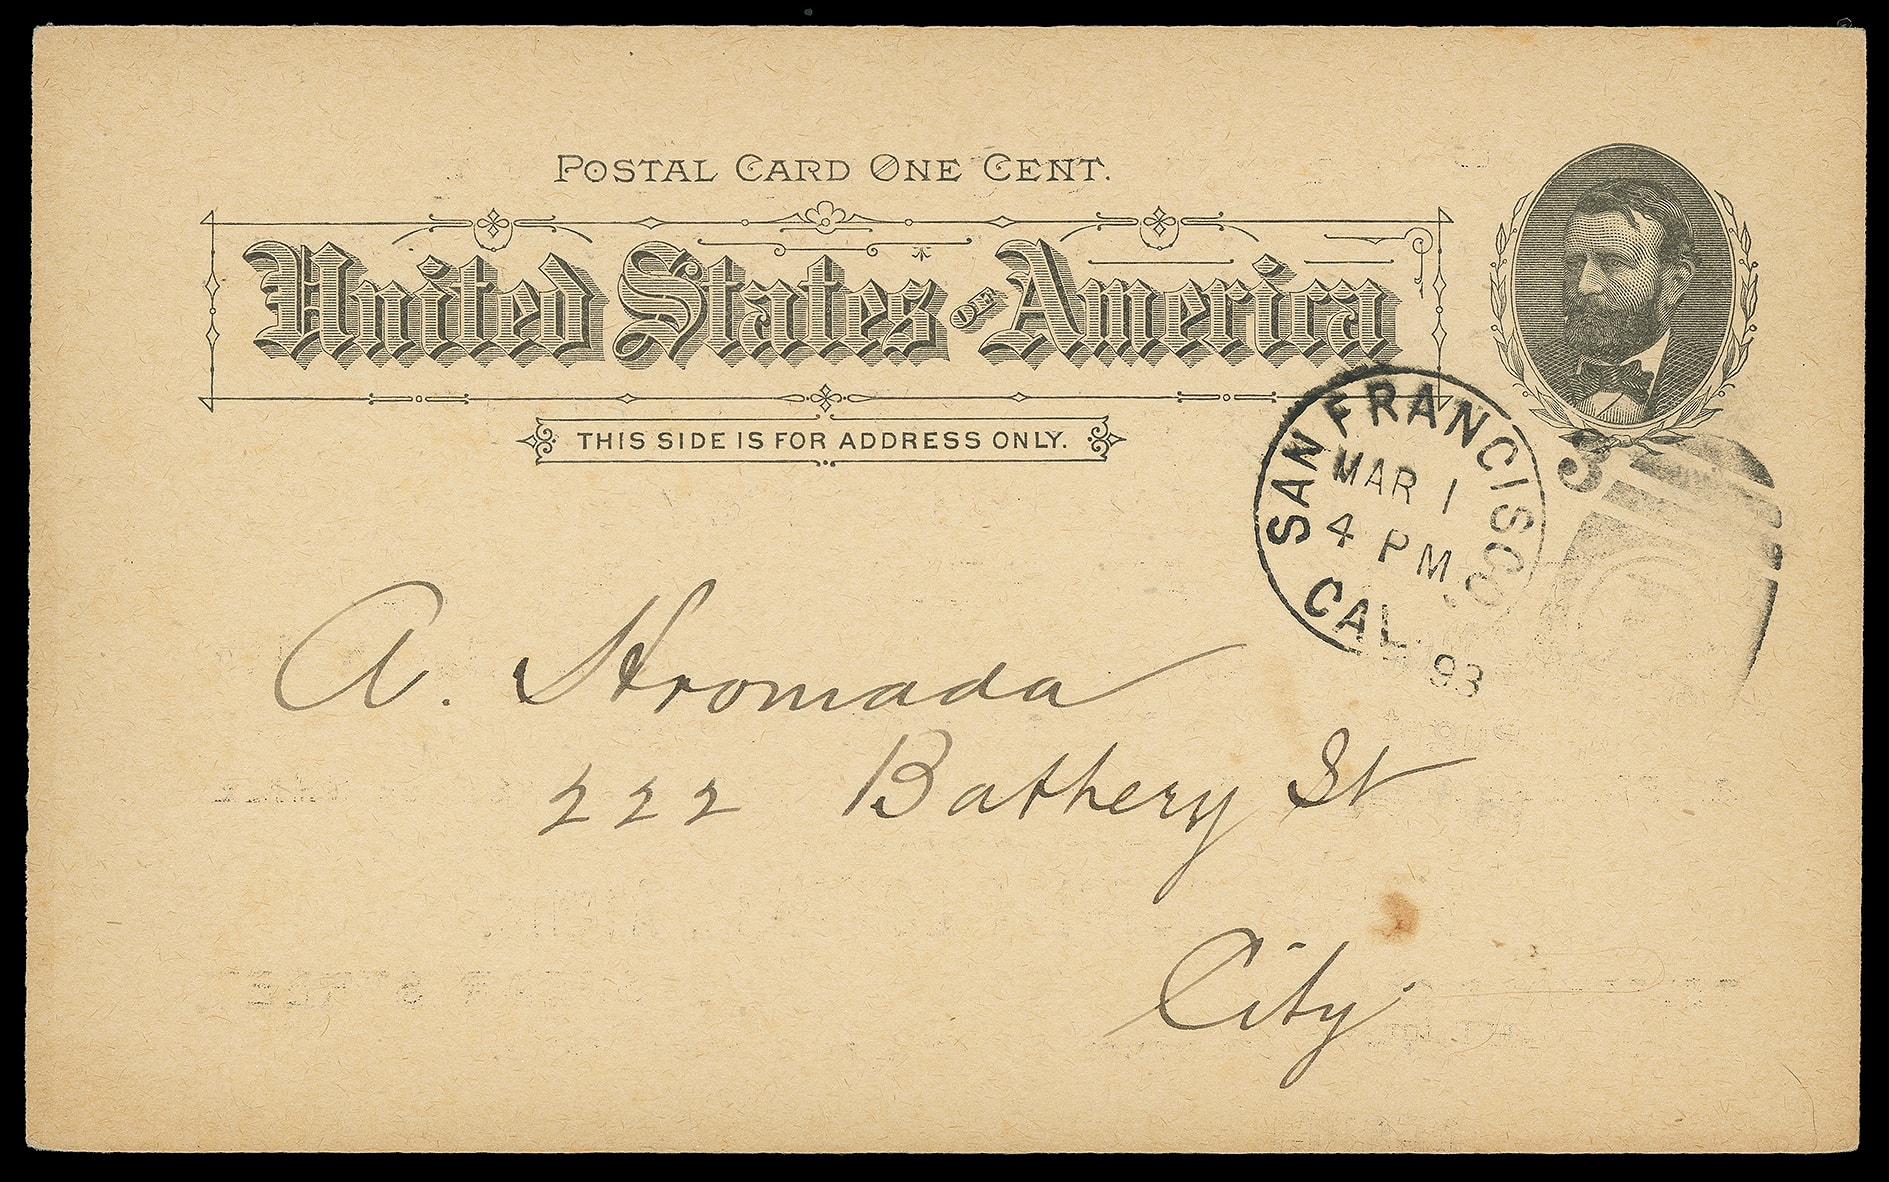 POSTAL CARD ONE CENT.
United States OF America
THIS SIDE IS FOR ADDRESS ONLY.
SAN FRANCISCO
MAR 1
4 PM
CAL. 93
3
A. Hromada
222 Bathery St
City